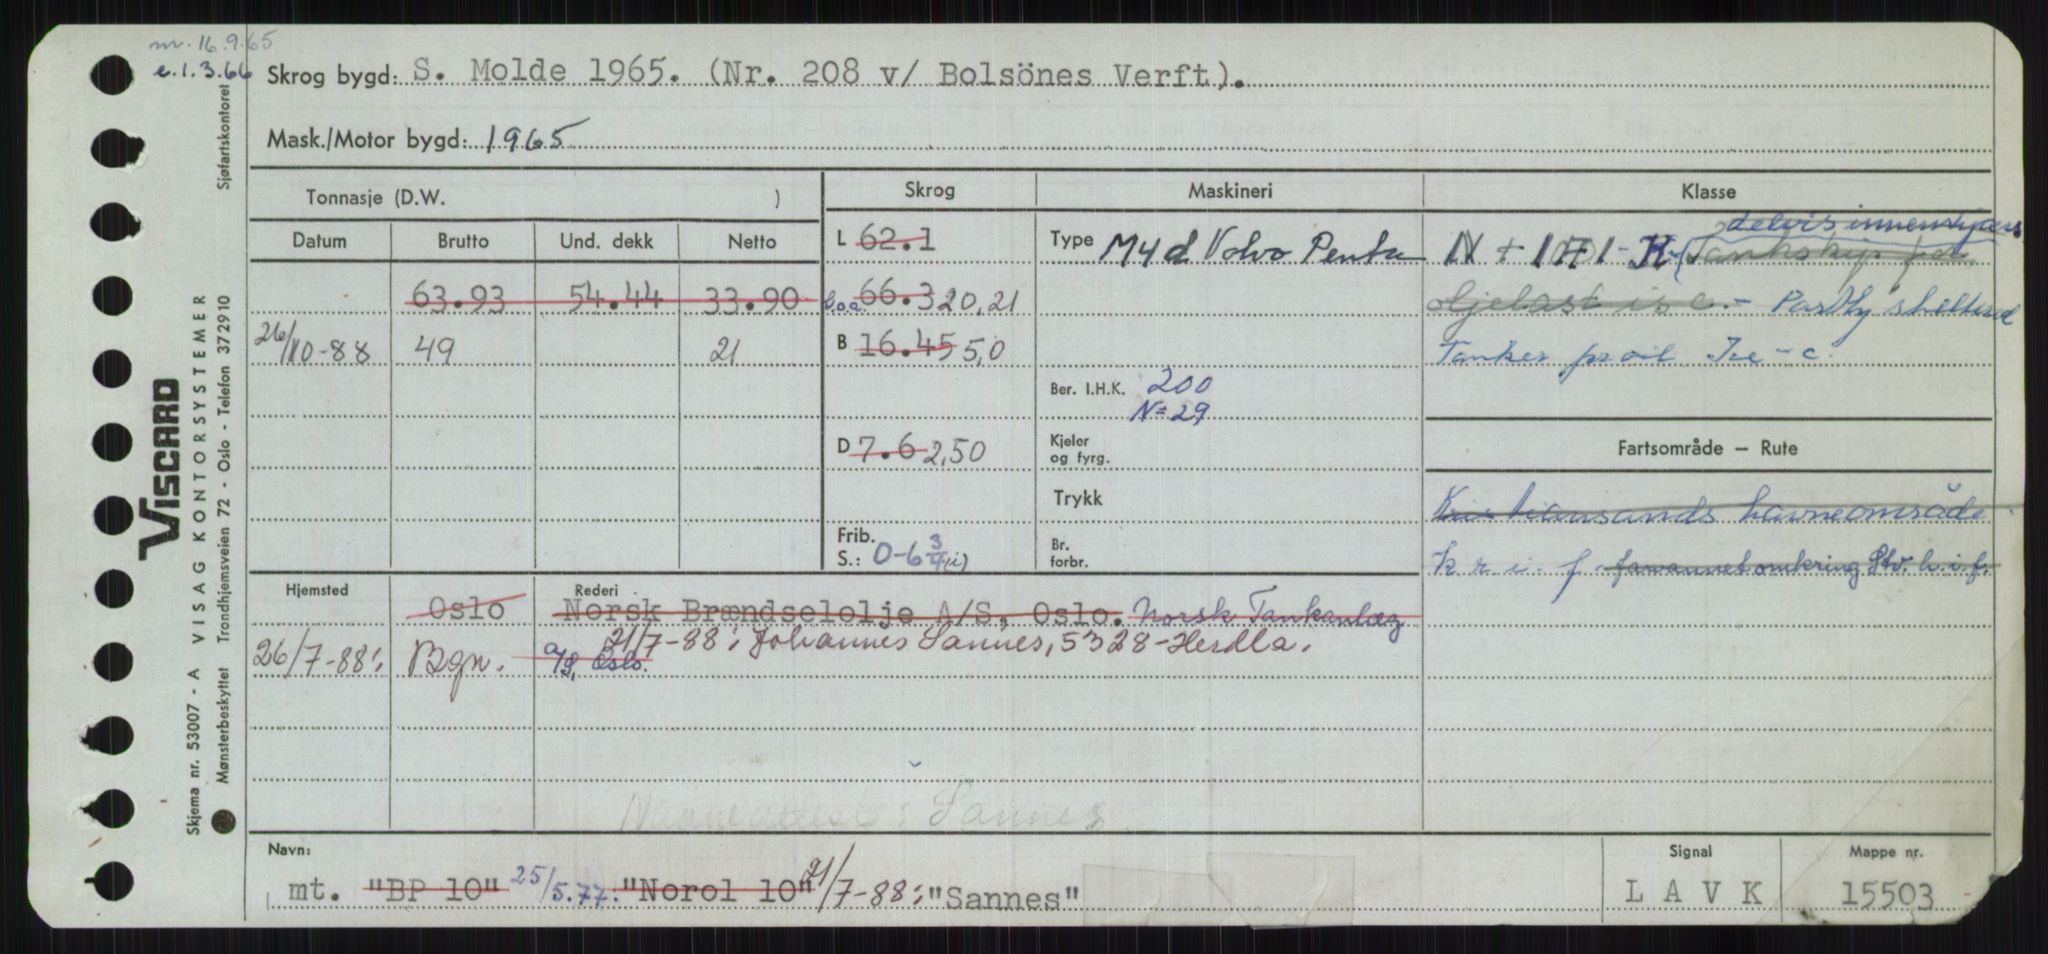 nr. 16.9.65
e.1.3.66
Skrog bygd: S. Molde 1965. (Nr. 208 v/ Bolsönes Verft).
Mask./Motor bygd: 1965
Tonnasje (D.W. )
Skrog
Maskineri
Klasse
Datum
Brutto
Und. dekk
Netto
L 62.1
Type M4d Volvo Penta
delvis innenskjærs
N + 1A1 - K - (Tankskip for
63.93 54.44 33.90
b.o.a. 66.3 20,21
oljelast is c. - Partly sheltered
26/10-88 49 21
B 16.45 5,0
Tanker for oil Ice - c.
Ber. I.H.K. 200
N= 29
D 7.6 2,50
Kjeler
og fyrg.
Fartsområde – Rute
Trykk
Kristiansands havneområde
Frib.
S.: 0-6 3/4 (i)
Br.
forbr.
k r i. f. farvannet omkring Stv. h. i. f.
Hjemsted
Oslo
Rederi
Norsk Brændselolje A/S, Oslo. Norsk Tankanlæg
26/7-88: Bgn. a/s, Oslo.
21/7-88: Johannes Sannes, 5328-Herdla.
Sannes
Navn:
mt. "BP 10" 25/5.77: "Norol 10" 21/7-88: "Sannes"
Signal
L A V K
Mappe nr.
15503
VISCARD
Skjema nr. 53007 - A VISAG KONTORSYSTEMER
Mønsterbeskyttet Trondhjemsveien 72 - Oslo - Telefon 372910 Sjøfartskontoret